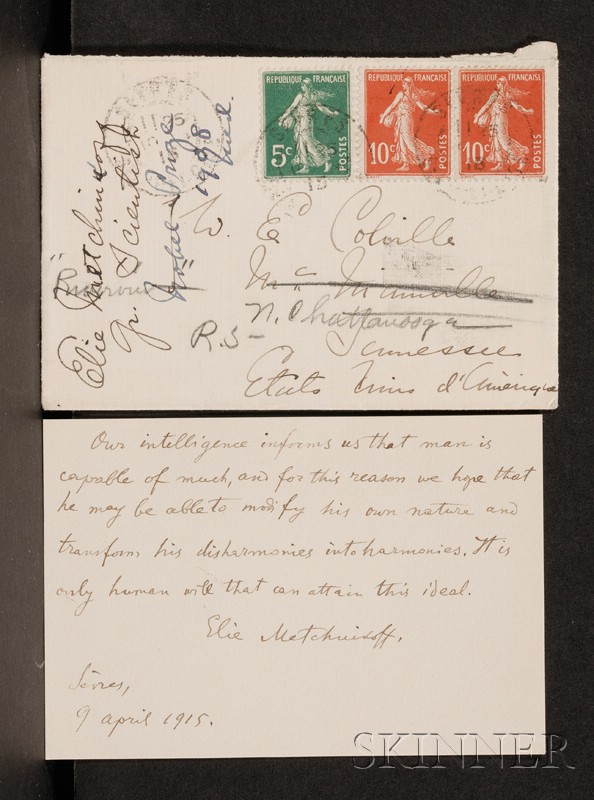 REPUBLIQUE FRANÇAISE
5c
POSTES
REPUBLIQUE FRANÇAISE
10c
POSTES
REPUBLIQUE FRANÇAISE
10c
POSTES
Elie Metchnikoff
Scientist
Nobel Prize
1908
E Colville
N. Chattanooga
R.S-
Tennessee
Etats Unis d'Amérique
Our intelligence informs us that man is
capable of much, and for this reason we hope that
he may be able to modify his own nature and
transform his disharmonies into harmonies. It is
only human will that can attain this ideal.
Elie Metchnikoff.
Sèvres,
9 april 1915.
SKINNER